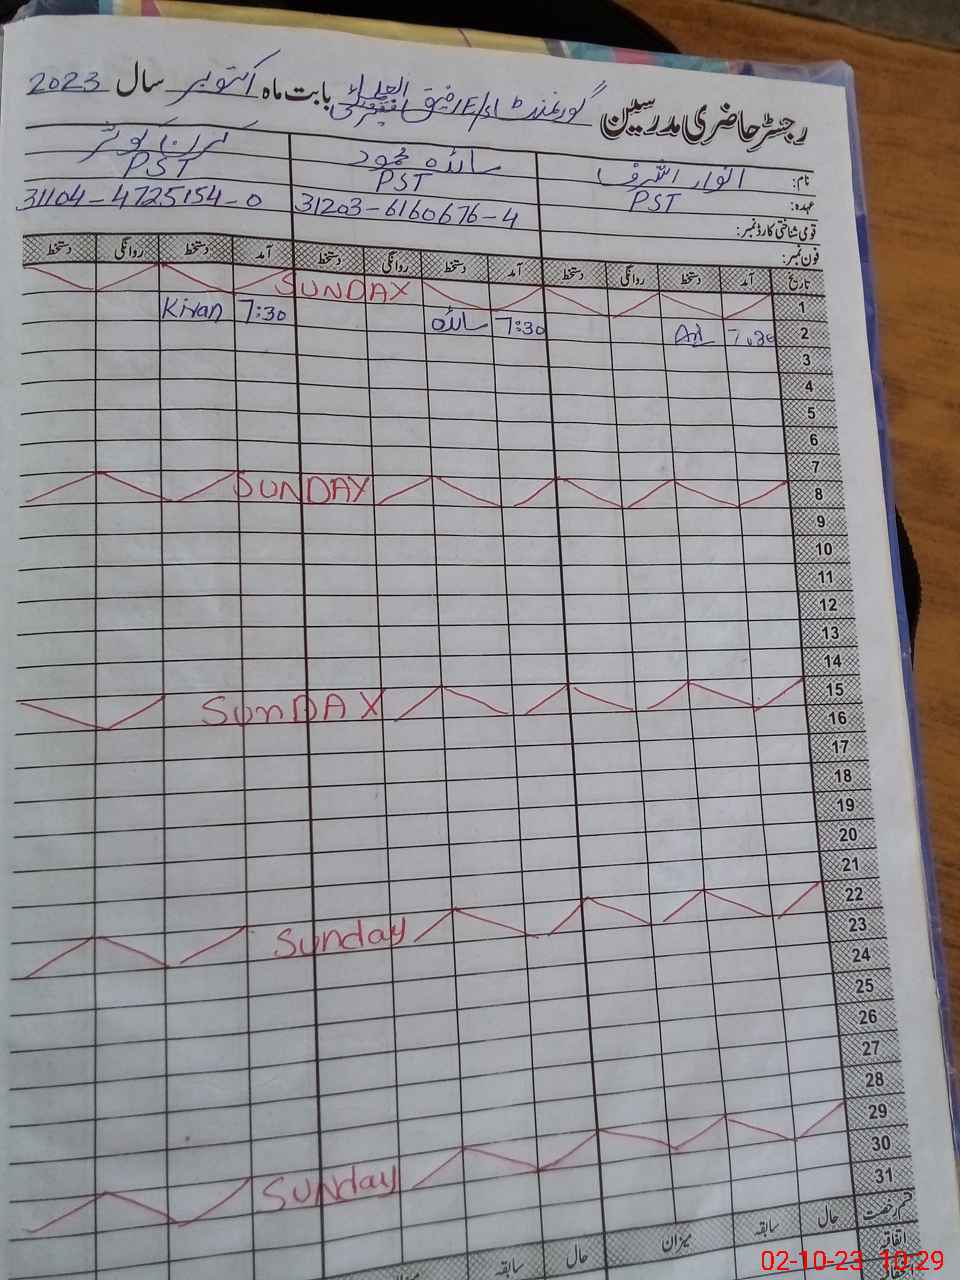 رجسٹر حاضری مدرسین گورنمنٹ بابت ماہ اکتوبر سال 2023
نام: انوار اشرف سائرہ محمود کرن کوثر
عہدہ: PST PST PST
قومی شناختی کارڈ نمبر: 31203-6160676-4 31104-4725154-0
فون نمبر:
تاریخ آمد دستخط روانگی دستخط آمد دستخط روانگی دستخط آمد دستخط روانگی دستخط
1 SUNDAY
2 7:30 7:30 سائرہ 7:30 Kiran
3
4
5
6
7
8 SUNDAY
9
10
11
12
13
14
15 SUNDAY
16
17
18
19
20
21
22 Sunday
23
24
25
26
27
28
29 Sunday
30
31
قسم رخصت حال سابقہ میزان حال سابقہ میزان
اتفاقی
02-10-23 10:29